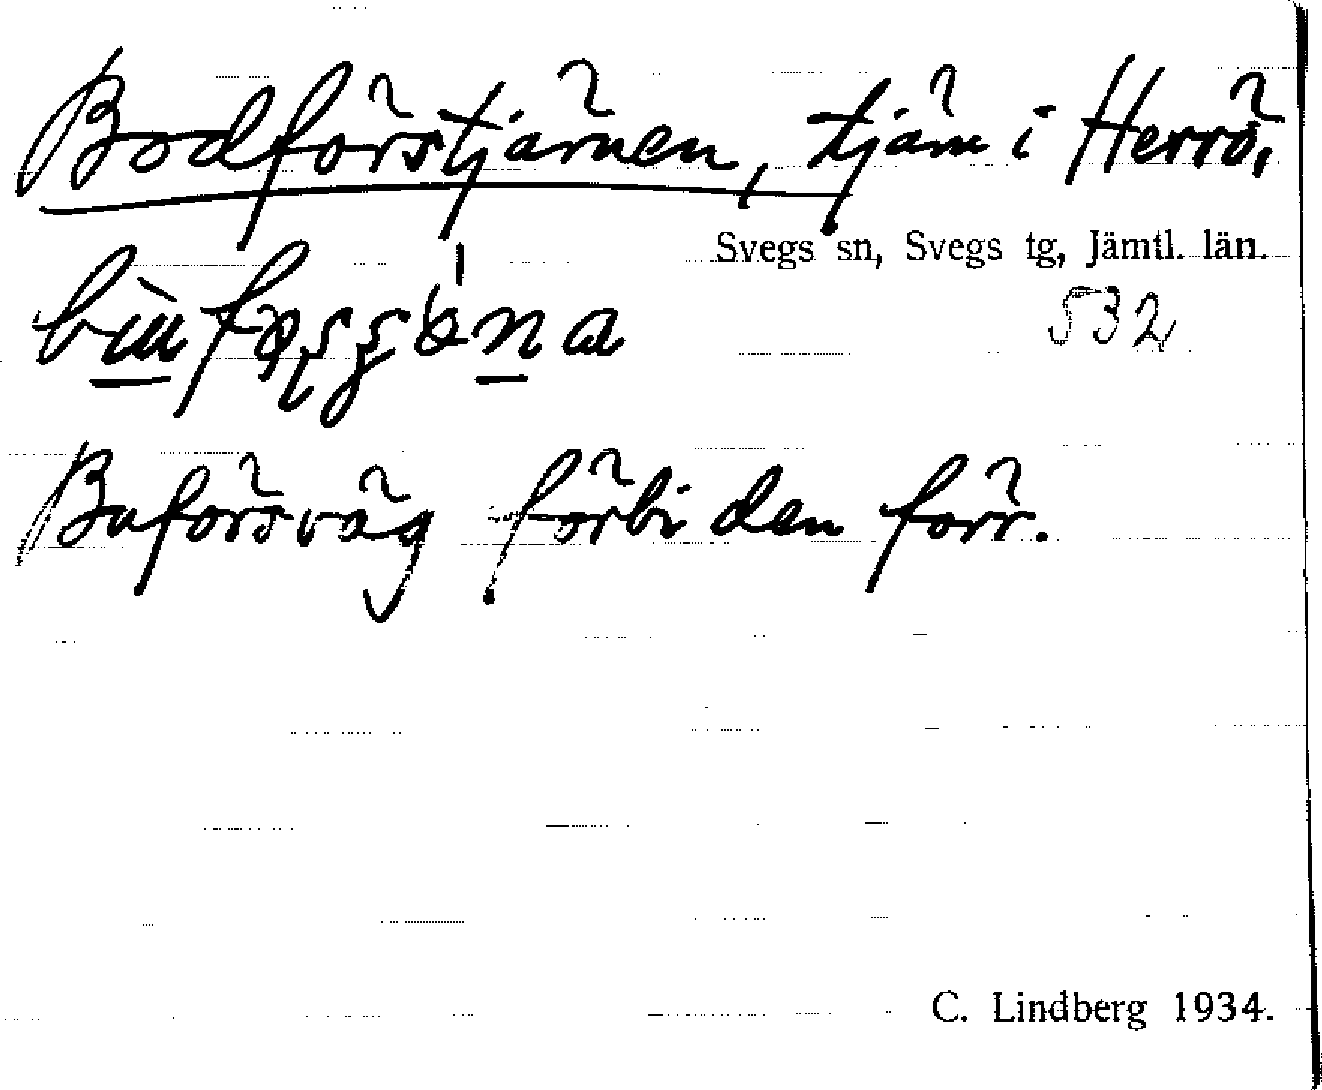 Bodförstjärnen, tjärn i Herrö,
Svegs sn, Svegs tg, Jämtl. län.
532
Buförsväg förbi den förr.
C. Lindberg 1934.